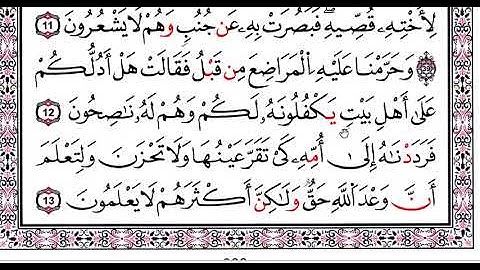 لِأُخْتِهِۦ قُصِّيهِۖ فَبَصُرَتْ بِهِۦ عَن جُنُبٍ وَهُمْ لَا يَشْعُرُونَ 11
وَحَرَّمْنَا عَلَيْهِ الْمَرَاضِعَ مِن قَبْلُ فَقَالَتْ هَلْ أَدُلُّكُمْ
عَلَىٰ أَهْلِ بَيْتٍ يَكْفُلُونَهُۥ لَكُمْ وَهُمْ لَهُۥ نَاصِحُونَ 12
فَرَدَدْنَاهُ إِلَىٰ أُمِّهِۦ كَيْ تَقَرَّ عَيْنُهَا وَلَا تَحْزَنَ وَلِتَعْلَمَ
أَنَّ وَعْدَ اللَّهِ حَقٌّ وَلَٰكِنَّ أَكْثَرَهُمْ لَا يَعْلَمُونَ 13